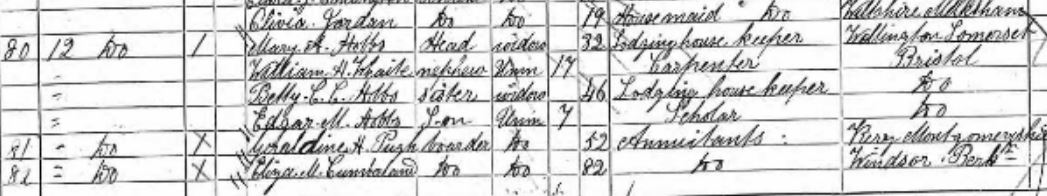 Olivia Jordan Do Do 19 Housemaid Do Wiltshire
80 12 Do 1 Mary A. Hobbs Head widow 32 Lodging house keeper Wellington Somerset
William H. nephew Unm 17 Carpenter Bristol
= Betty C. C. Hobbs Sister widow 46 Lodging house keeper Do
= Edgar M. Hobbs Son Unm 7 Scholar Do
81 = Do X Geraldine H. Pugh boarder Do 52 Annuitants Montgomeryshire
82 = Do X Eliza M. Cumbaland Do Do 82 Do Windsor Berks